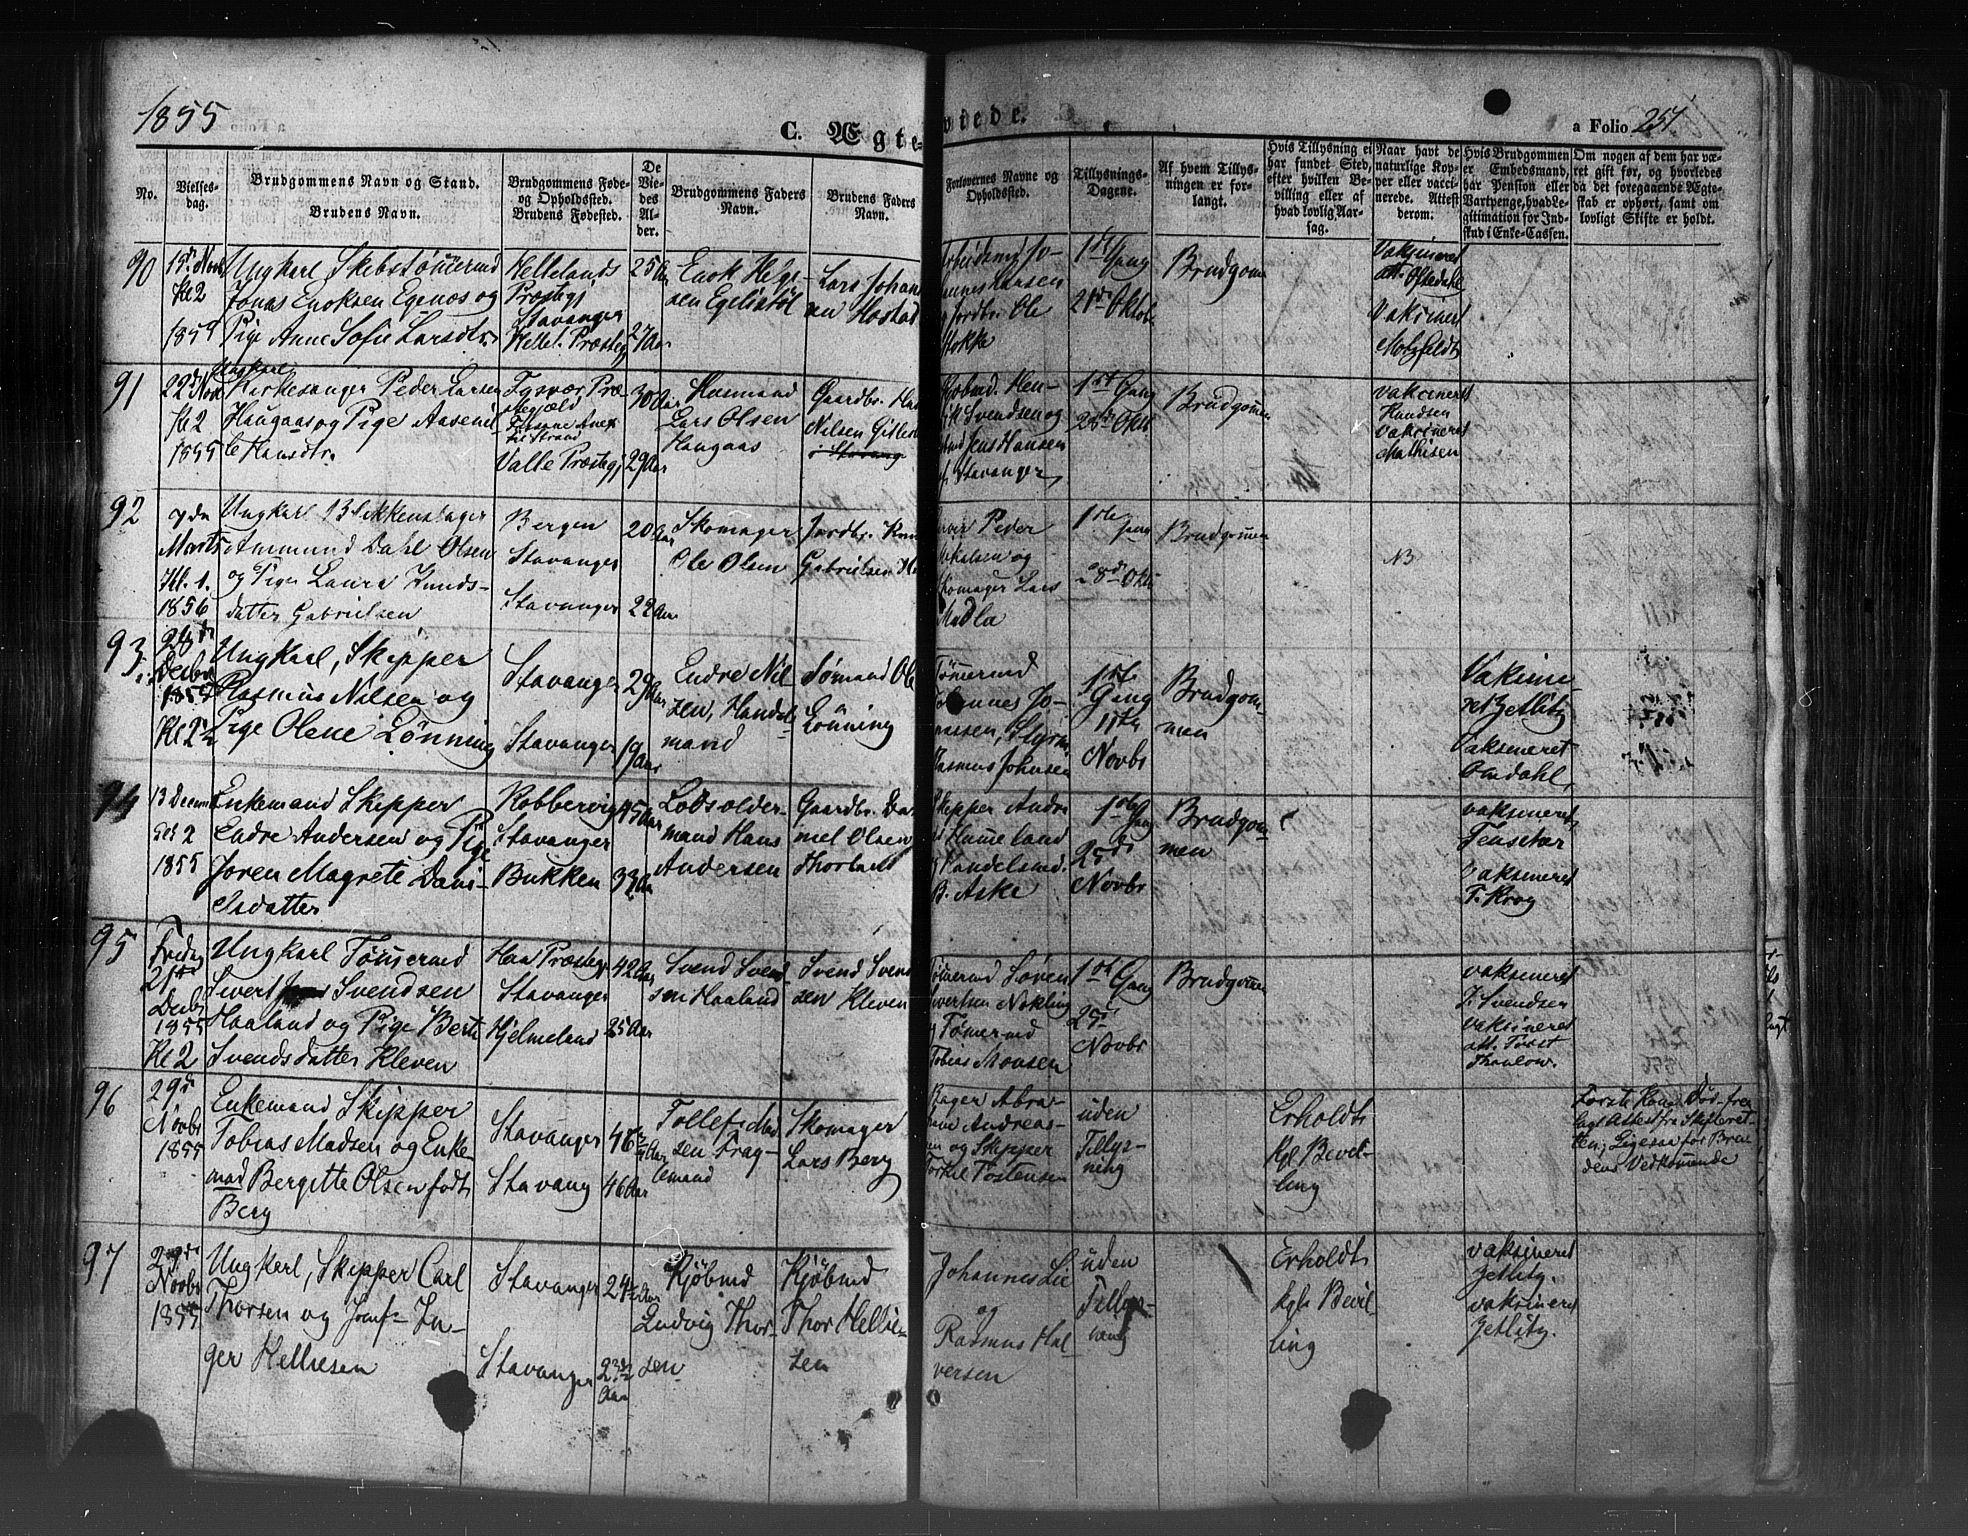 1855
C. Ægteviede.
a Folio 257
No.
Vielses-
dag.
Brudgommens Navn og Stand.
Brudens Navn.
Brudgommens Føde-
og Opholdssted.
Brudens Fødested.
De
Vie-
des
Al-
der.
Brudgommens Faders
Navn.
Brudens Faders
Navn.
Forlovernes Navne og
Opholdssted.
Tillysnings-
Dagene.
Af hvem Tillys-
ningen er for-
langt.
Hvis Tillysning ei
har fundet Sted,
efter hvilken Be-
villing eller af
hvad lovlig Aar-
sag.
Naar havt de
naturlige Kop-
per eller vacci-
nerede. Attest
derom.
Hvis Brudgommen
er Embedsmand,
har Pension eller
Vartpenge, hvad Le-
gitimation for Ind-
skud i Enke-Cassen.
Om nogen af dem har væ-
ret gift før, og hvorledes
da det foregaaende Ægte-
skab er ophørt, samt om
lovligt Skifte er holdt.
90
Kl 2
Ungkarl
Jonas Enoksen Egenæs og
Pige Anne Sofie Larsdtr
Hellelands
Præstegj
Stavanger
Hellel. Præstegj
25 Aar
27 Aar
Enok Helge-
sen Egelistøl
Lars Johan
sen Hostad
Arbeidsmd Jo-
hannes Larsen
og Jordbr. Ole
Stokke
1ste Gang
21de Oktob.
Brudgom
Vaksineret
att. Oftedahl
Vaksineret
Motzfeldt
91
22d Nov
Kl 2
1855
Ungkarl
Kirkesanger Peder Larsen
Haugaas og Pige Aaseni-
le Hansdtr.
Tysvær Præ-
stegjæld
til Strand
Valle Præstegj
30 Aar
29 Aar
Husmand
Lars Olsen
Haugaas
Gaardbr. Ha
Nilsen
i Stavang
Svendsen og
Jens Hansen
af Stavanger
1ste Gang
28de Okt.
Brudgommen
Vaksineret
Knudsen
Vaksineret
Mathisen
92
7de
Marts
Kl. 1.
1856
Ungkarl Blikkenslager
Ammund Dahl Olsen
og Pige Laura Knuds-
datter Gabrielsen
Bergen
Stavanger
Stavanger
20 Aar
22 Aar
Skomager
Ole Olsen
Jordbr. Knu
Gabrielsen
Peder
Mikalsen og
Skomager Lars
Madla
1ste
Gang
28de Okt
Brudgommen
NB
93
28de
Decbr
1855
Kl 2½
Ungkarl, Skipper
Rasmus Nilsen og
Pige Olene Lønning
Stavanger
Stavanger
29 Aar
19 Aar
Endre Nil-
sen, Handel-
mand
Sømand Ole
Lønning
Tømermd
Johannes Jo-
nassen, Styrm.
Rasmus Johnsen
1ste
Gang
11te
Novbr
Brudgom-
men
Vaksine-
ret Zetlitz
Vaksineret
Omdahl,
94
13 Decem
Kl 2
1855
Enkemand Skipper
Endre Andersen og Pige
Joren Magrete Dani-
elsdatter
Kobbervig
Stavanger
Bukken
45 Aar
33 Aar
Lodsolder-
mand Hans
Andersen
Gaardbr. Da-
niel Olsen
Skipper Andre
as Hummeland
og Handelsmd.
B. Aske
1ste Gang
25de
Novbr
Brudgom-
men
vaksineret,
Vaksineret
T. Krog
95
Fredag
21de
Decbr
1855
Kl 2
Ungkarl Tømermd
Sivert Svendsen
Haaland og Pige Berte
Svendsdatter Kleven
Haa Præstegj
Stavanger
Hjelmeland
42 Aar
25 Aar
Svend Svend-
sen Haaland
Svend Svend
sen Kleven
Tømermd Søren
Sivertsen Nekling
og Tømermd
Tobias Monsen
1ste Gang
25de
Novbr
Brudgom
vaksineret
J. Svendsen
vaksineret
att. Provst
Thaulow.
96
29de
Novbr
1855
Enkemand Skipper
Tobias Madsen og Enke-
mad Bergitte Olsen født
Berg
Stavanger
Stavang
46 Aar
Tollef Mad
sen Frag-
temand
Skomager
Lars Berg
Bager Abra-
ham Andreas-
sen og Skipper
Torkel Tostensen
uden
Tillys-
ning
Erholdt
Kgl Bevil-
ling
Første Kone Død, fre
lagt Attest fra Skifteret-
ten; Ligesaa for Bru
dens Vedkommende
97
29de
Novbr
1855
Ungkarl, Skipper Carl
Thorsen og Jomf. In-
ger Helliesen
Stavanger
Stavanger
24½ Aar
23½
Aar
Kjøbmd
Ludvig Thor-
sen
Kjøbmd
Thor Hellie-
sen
Johannes Lie
og
Rasmus Hal-
versen
uden
Tillys-
ning
Erholdt
kgl. Bevil-
ling
vaksineret
Zetlitz.
vaksineret
Zetlitz.